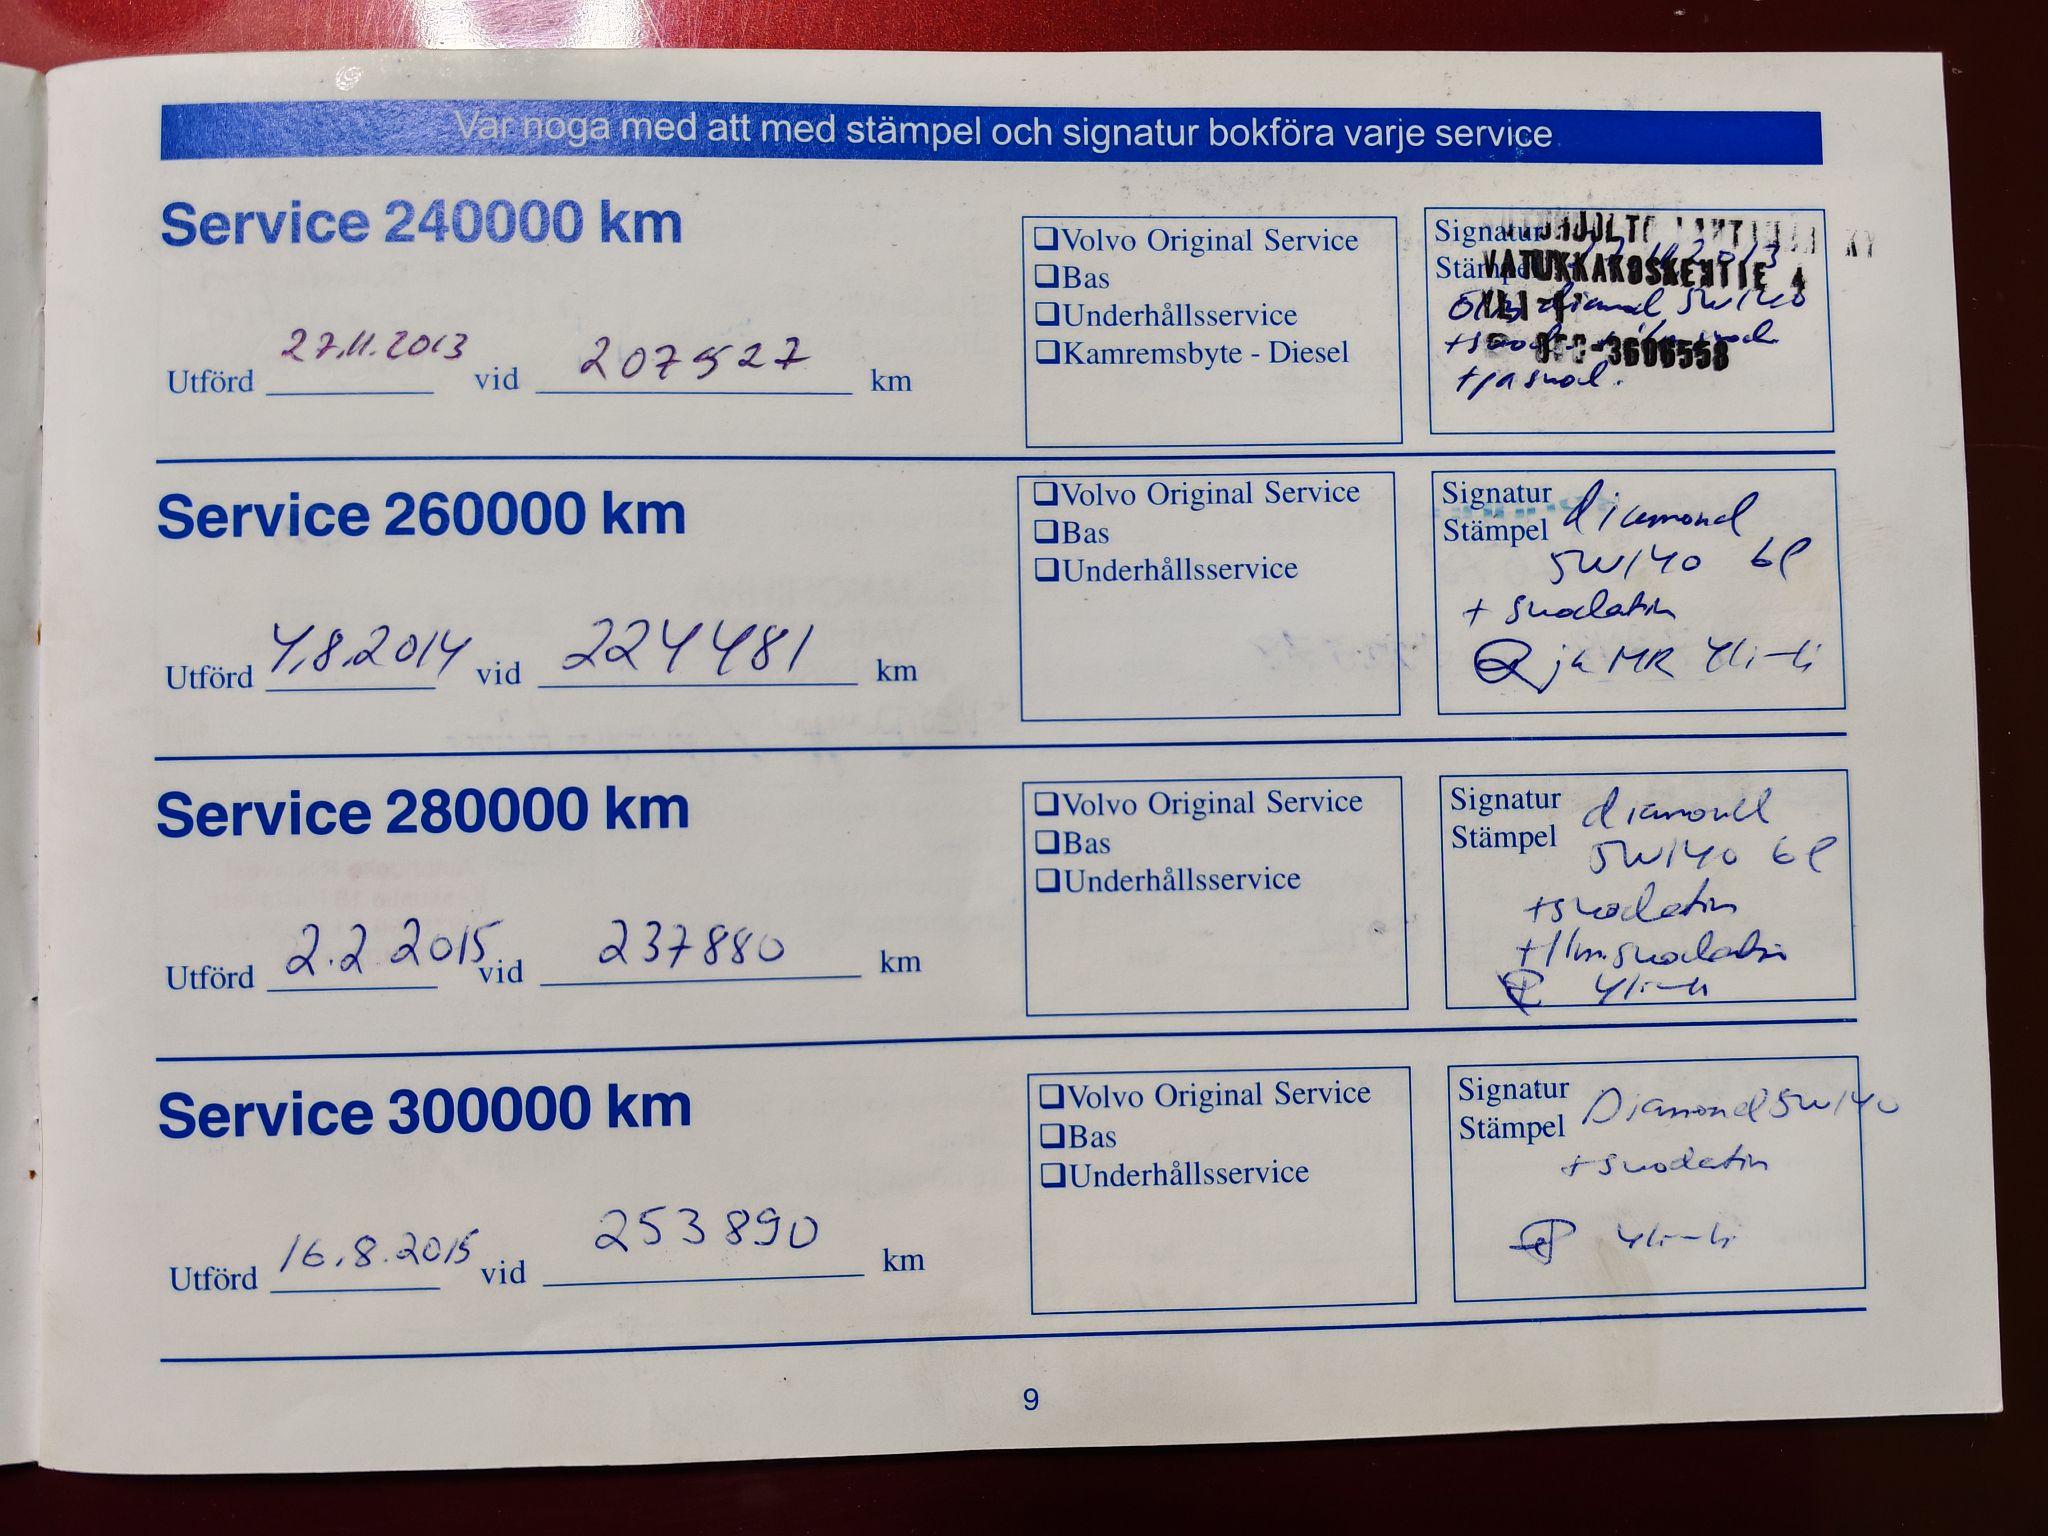 Var noga med att med stämpel och signatur bokföra varje service
Service 240000 km
Utförd 27.11.2013 vid 207527 km
Volvo Original Service
Bas
Underhållsservice
Kamremsbyte - Diesel
Signatur
Stämpel
VATUKKAKOSKENTIE 4
diamond 5W/40
3606558
Service 260000 km
Utförd 4.8.2014 vid 224481 km
Volvo Original Service
Bas
Underhållsservice
Signatur
Stämpel diamond
5W/40 6l
+ suodatin
ja MR Yli-Ii
Service 280000 km
Utförd 2.2 2015 vid 237880 km
Volvo Original Service
Bas
Underhållsservice
Signatur
Stämpel diamond
5W/40 6l
+suodatin
+ Ilm.suodatin
Yli-Ii
Service 300000 km
Utförd 16.8.2015 vid 253890 km
Volvo Original Service
Bas
Underhållsservice
Signatur
Stämpel Diamond 5W/40
+suodatin
Yli-Ii
9